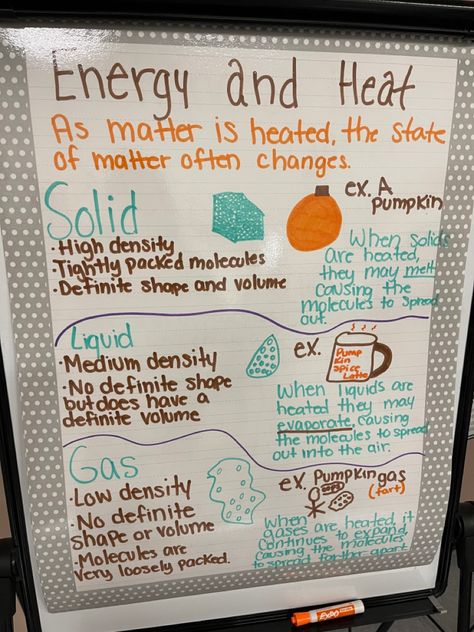 Energy and Heat
As matter is heated, the state
of matter often changes.
Solid
• High density
• Tightly packed molecules
• Definite shape and volume
ex. A
pumpkin
When solids
are heated,
they may melt
causing the
molecules to spread
out.
Liquid
• Medium density
• No definite shape
but does have a
definite volume
ex.
Pump
kin
Spice
Latte
When liquids are
heated they may
evaporate causing
the molecules to spread
out into the air.
Gas
• Low density
• No definite
shape or volume
• Molecules are
very loosely packed.
ex. Pumpkin gas
(fart)
When
gases are heated, it
continues to expand,
causing the molecules
to spread farther apart.
EXPO